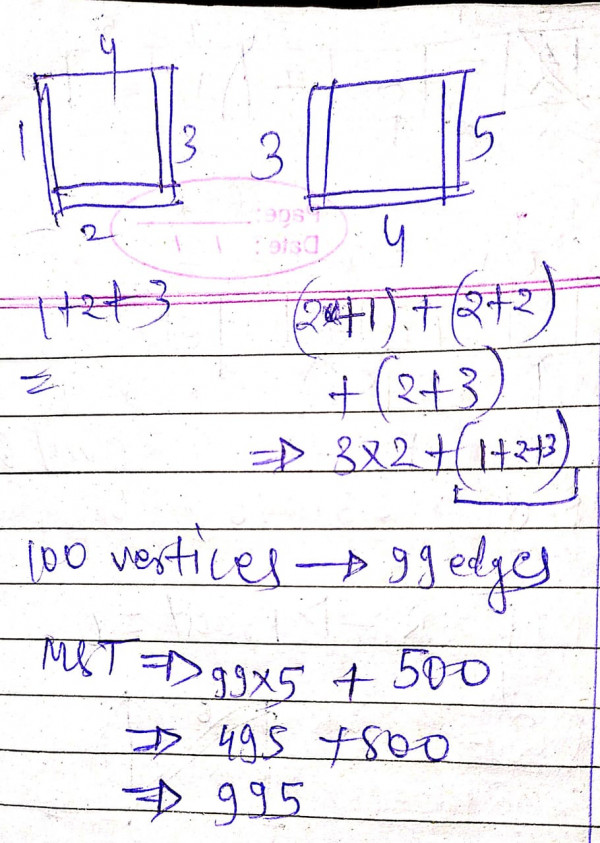 4
1 3 3 5
2 4
Page:
Date:
1+2+3 (2+1) + (2+2)
= + (2+3)
⇒ 3×2 + (1+2+3)
100 vertices → 99 edges
MST ⇒ 99×5 + 500
⇒ 495 +500
⇒ 995